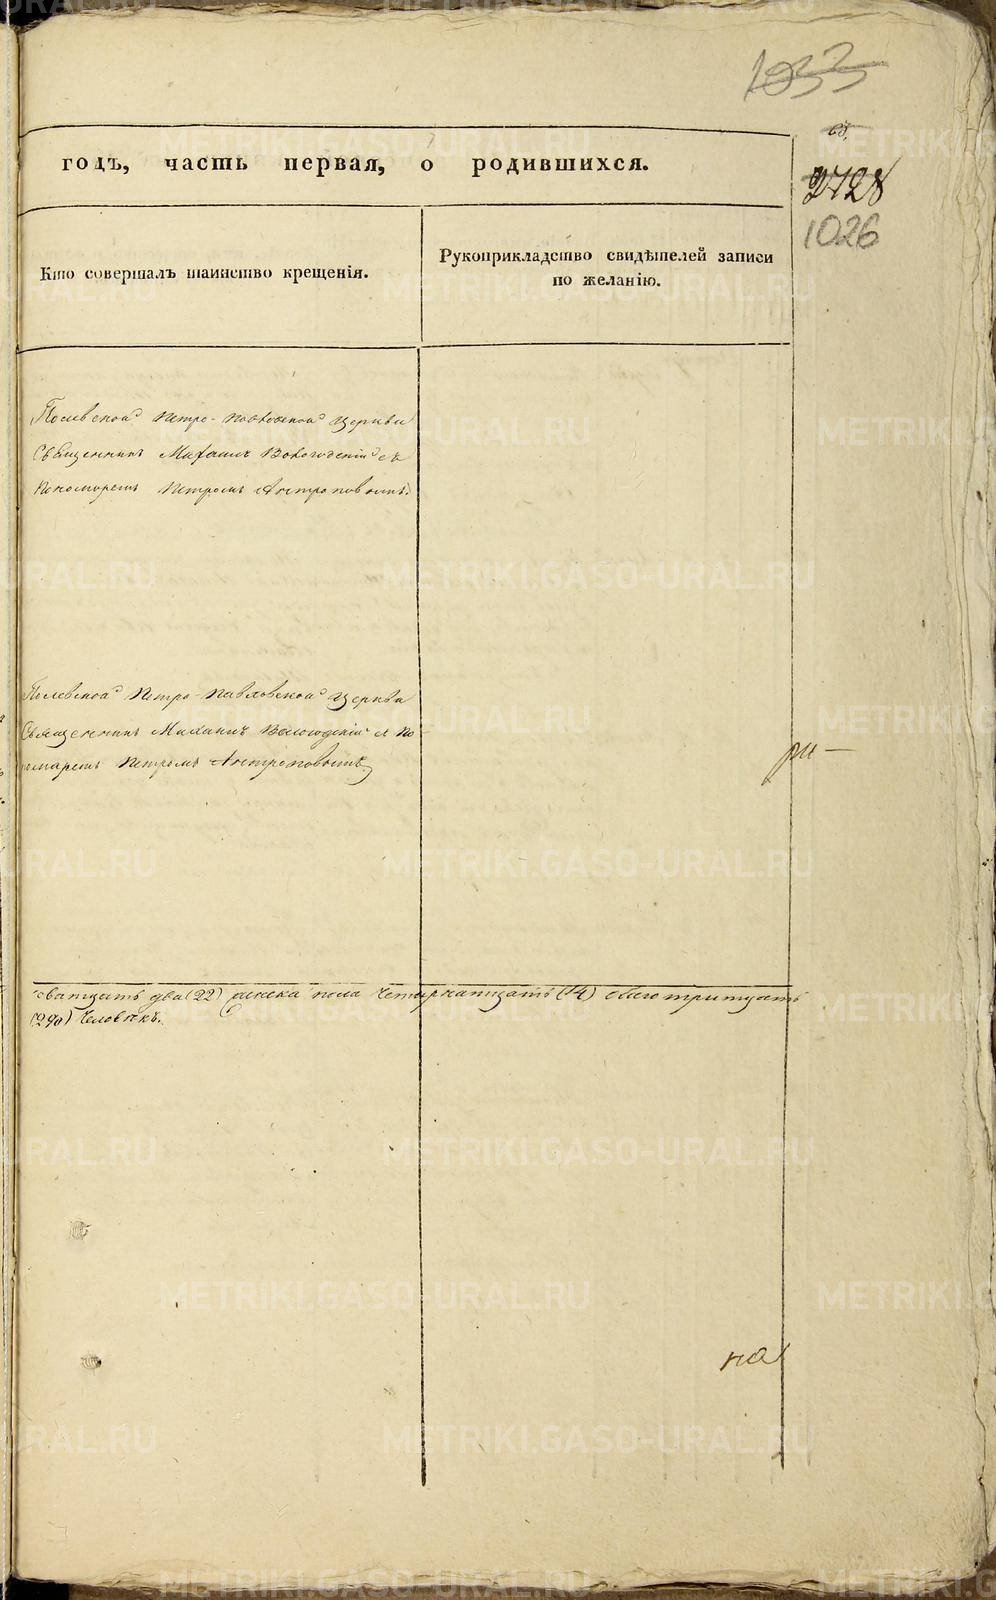 1033
2728
1026
годъ, часть первая, о родившихся.
Кто совершалъ таинство крещенія.
Рукоприкладство свидѣтелей записи
по желанію.
Полевской Петро-Павловской Церкви
Священникъ Михаилъ Вологодскій съ
Пономаремъ Петромъ Антроповымъ.
Полевской Петро-Павловской Церкви
Священникъ Михаилъ Вологодскій съ По
номаремъ Петромъ Антроповымъ
ри—
дватцать два (22) женска пола четырнатцать (14) обоего тритцать
Человѣкъ.
на
METRIKI.GASO-URAL.RU